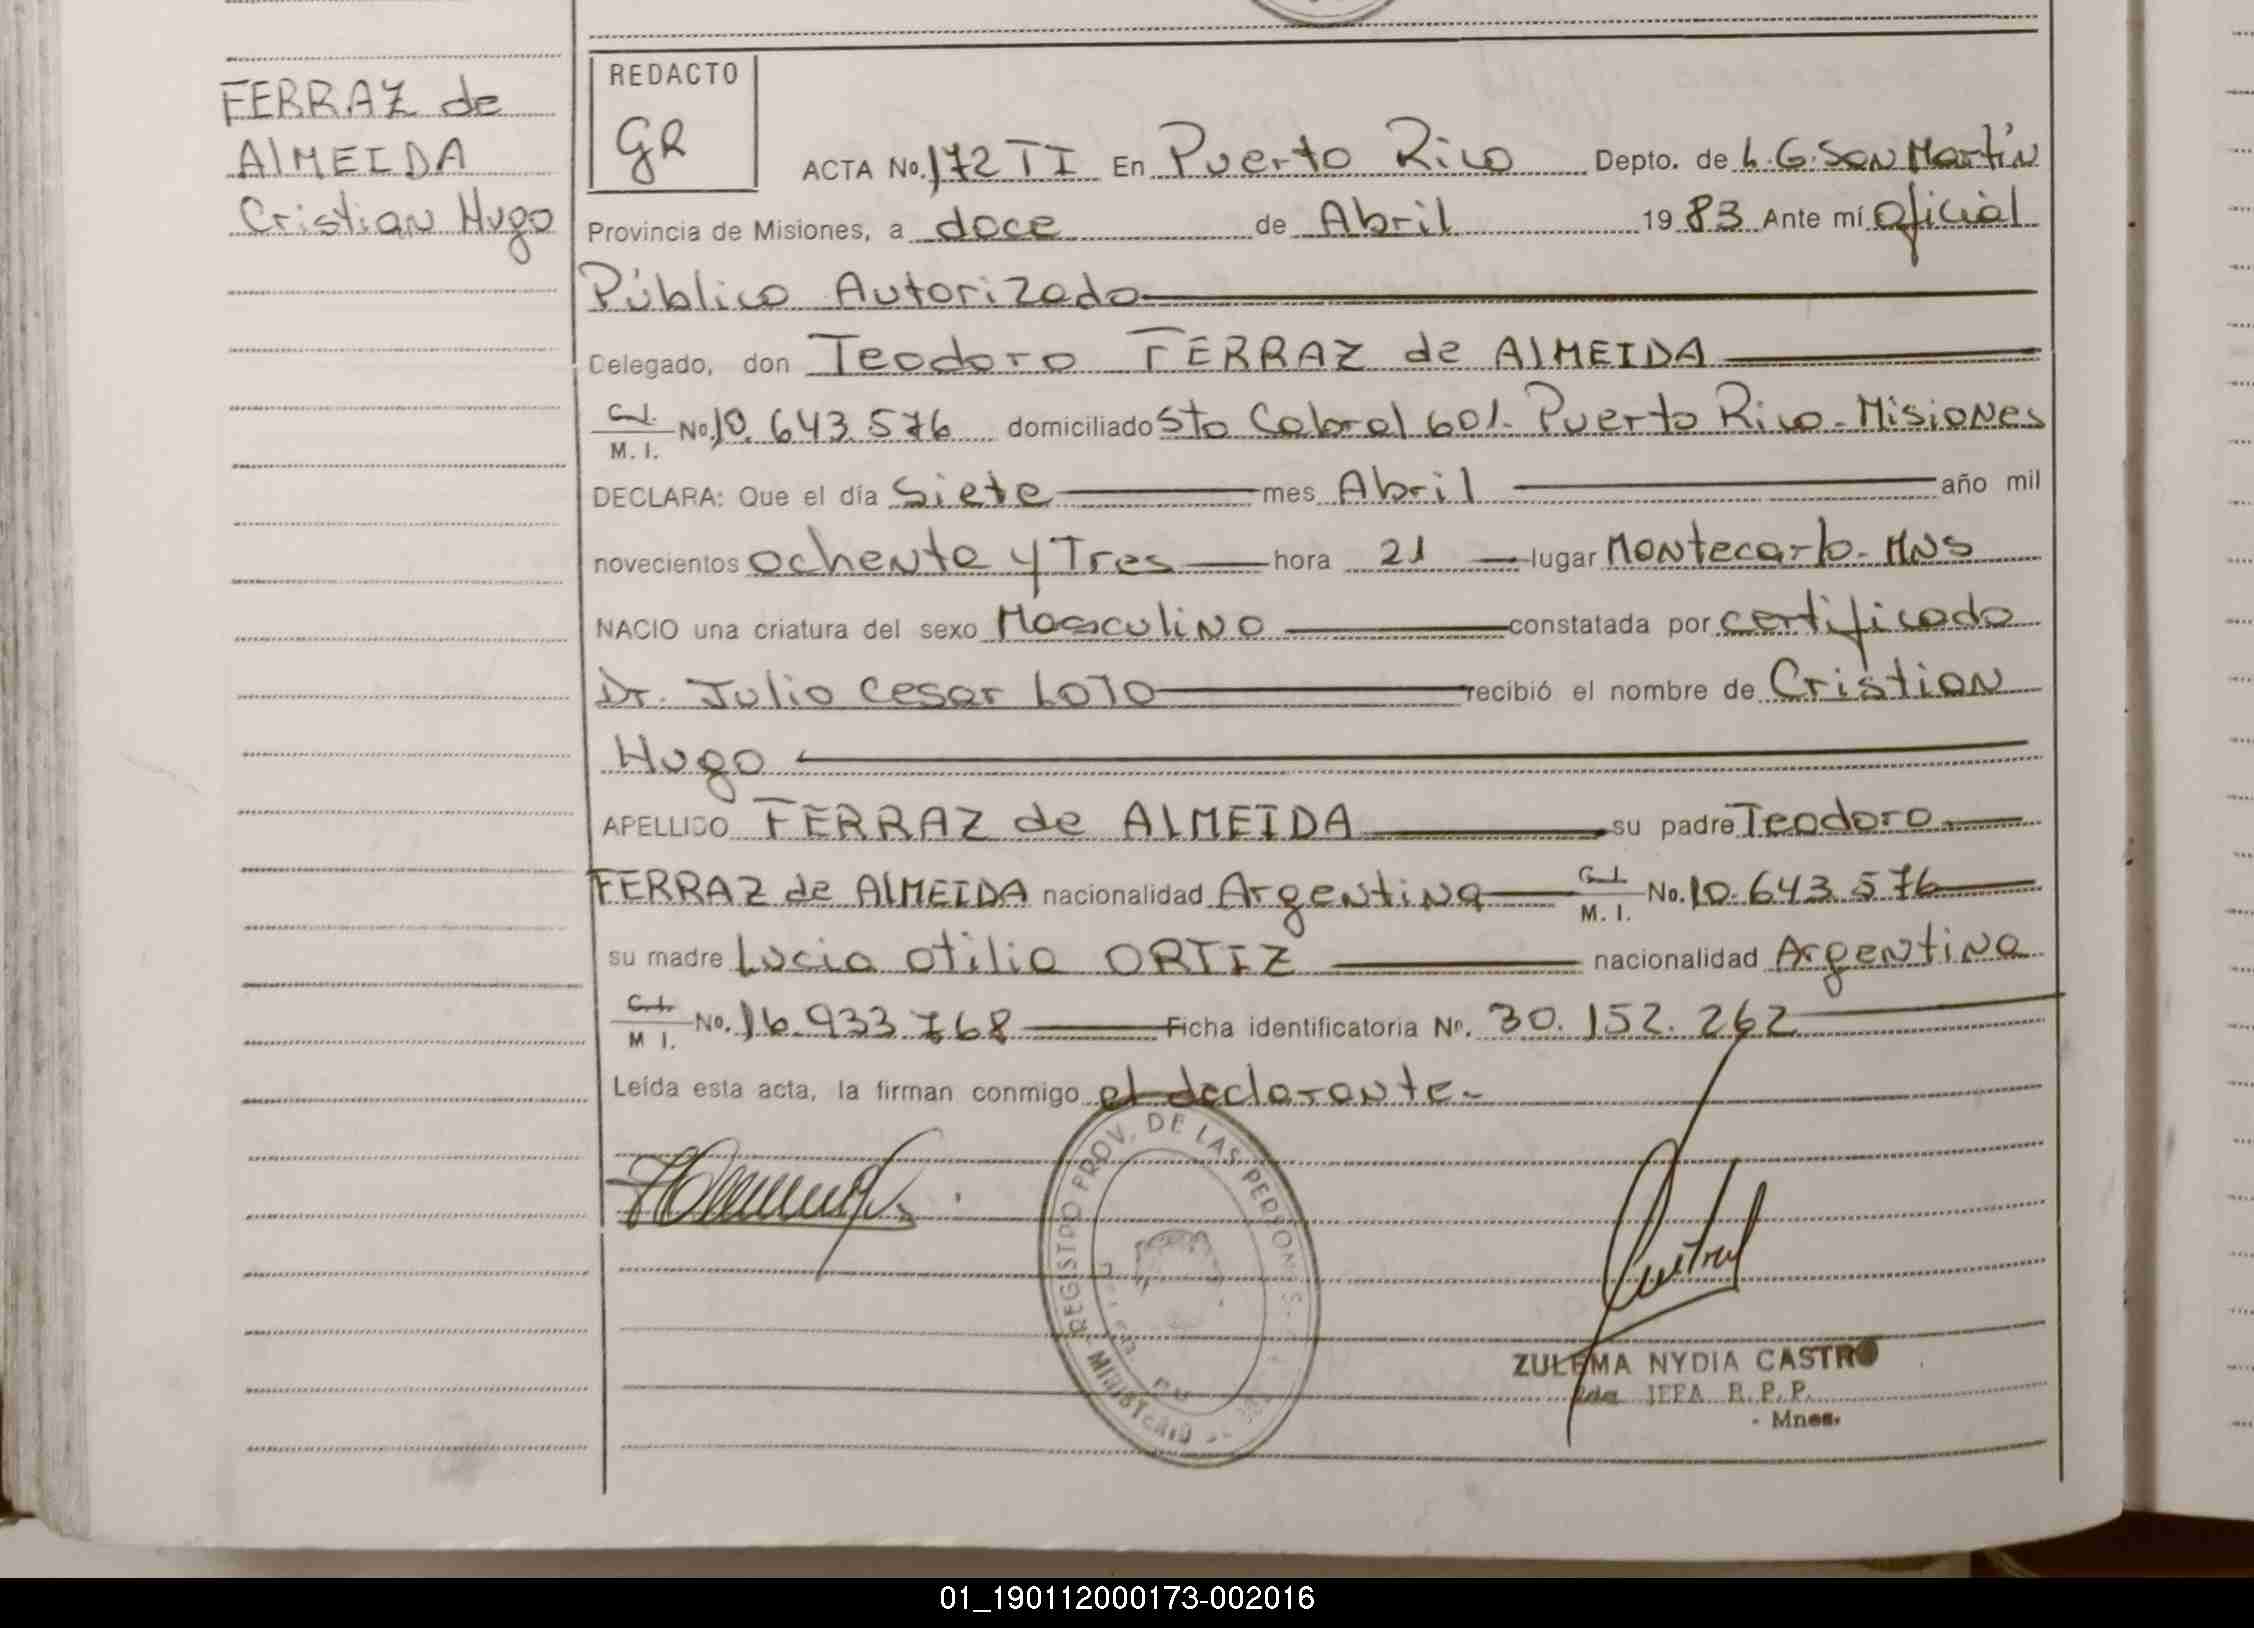 FERRAZ de
AlMEIDA
Cristian Hugo
REDACTO
GR
ACTA No. 172 TI En Puerto Rico Depto. de L.G. San Martín
Provincia de Misiones, a doce de Abril 19 83 Ante mí oficial
Público Autorizado
Delegado, don Teodoro FERRAZ de AlMEIDA
C.I.
M. I. No. 10.643.576 domiciliado Sto Cabral 601. Puerto Rico - Misiones
DECLARA: Que el día Siete mes Abril año mil
novecientos ochenta y Tres hora 21 lugar Montecarlo - MNS
NACIO una criatura del sexo Masculino constatada por certificado
Dr. Julio Cesar LOTO recibió el nombre de Cristian
Hugo
APELLIDO FERRAZ de AlMEIDA su padre Teodoro
FERRAZ de AlMEIDA nacionalidad Argentina C.I. M. I. No. 10.643.576
su madre Lucia otilia ORTIZ nacionalidad Argentina
C.I.
M I. No. 16.933.768 Ficha identificatoria No. 30.152.262
Leída esta acta, la firman conmigo el declarante.-
REGISTRO PROV. DE LAS PERSONAS
MINISTERIO
ZULEMA NYDIA CASTRO
2da JEFA R.P.P.
- Mnes.
01_190112000173-002016